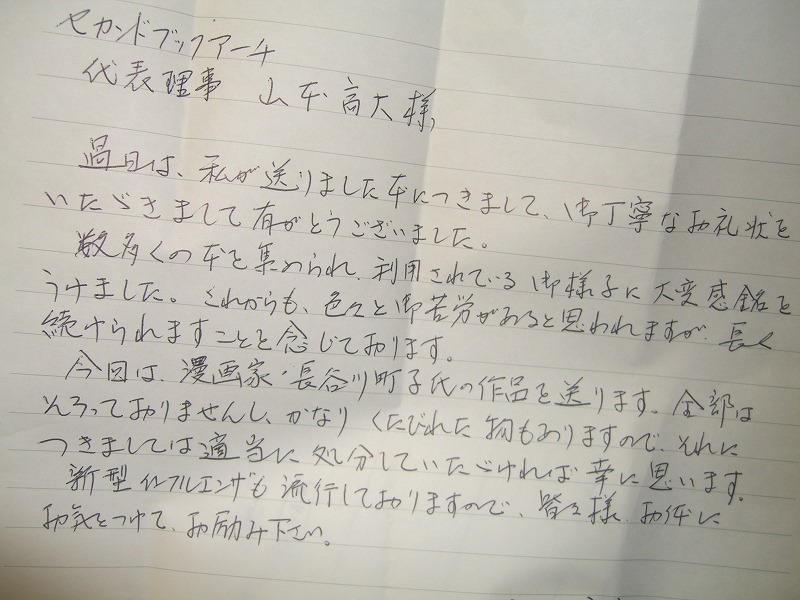 セカンドブックアーチ
代表理事 山本高大様
過日は、私が送りました本につきまして、御丁寧なお礼状を
いただきまして有がとうございました。
数多くの本を集められ、利用されている御様子に大変感銘を
うけました。これからも、色々と御苦労があると思われますが、長く
続けられますことを念じております。
今回は、漫画家・長谷川町子氏の作品を送ります。全部は
そろっておりませんし、かなりくたびれた物もありますので、それに
つきましては適当に処分していただければ幸に思います。
新型インフルエンザも流行しておりますので、皆々様、お体に
お気をつけて、お励み下さい。